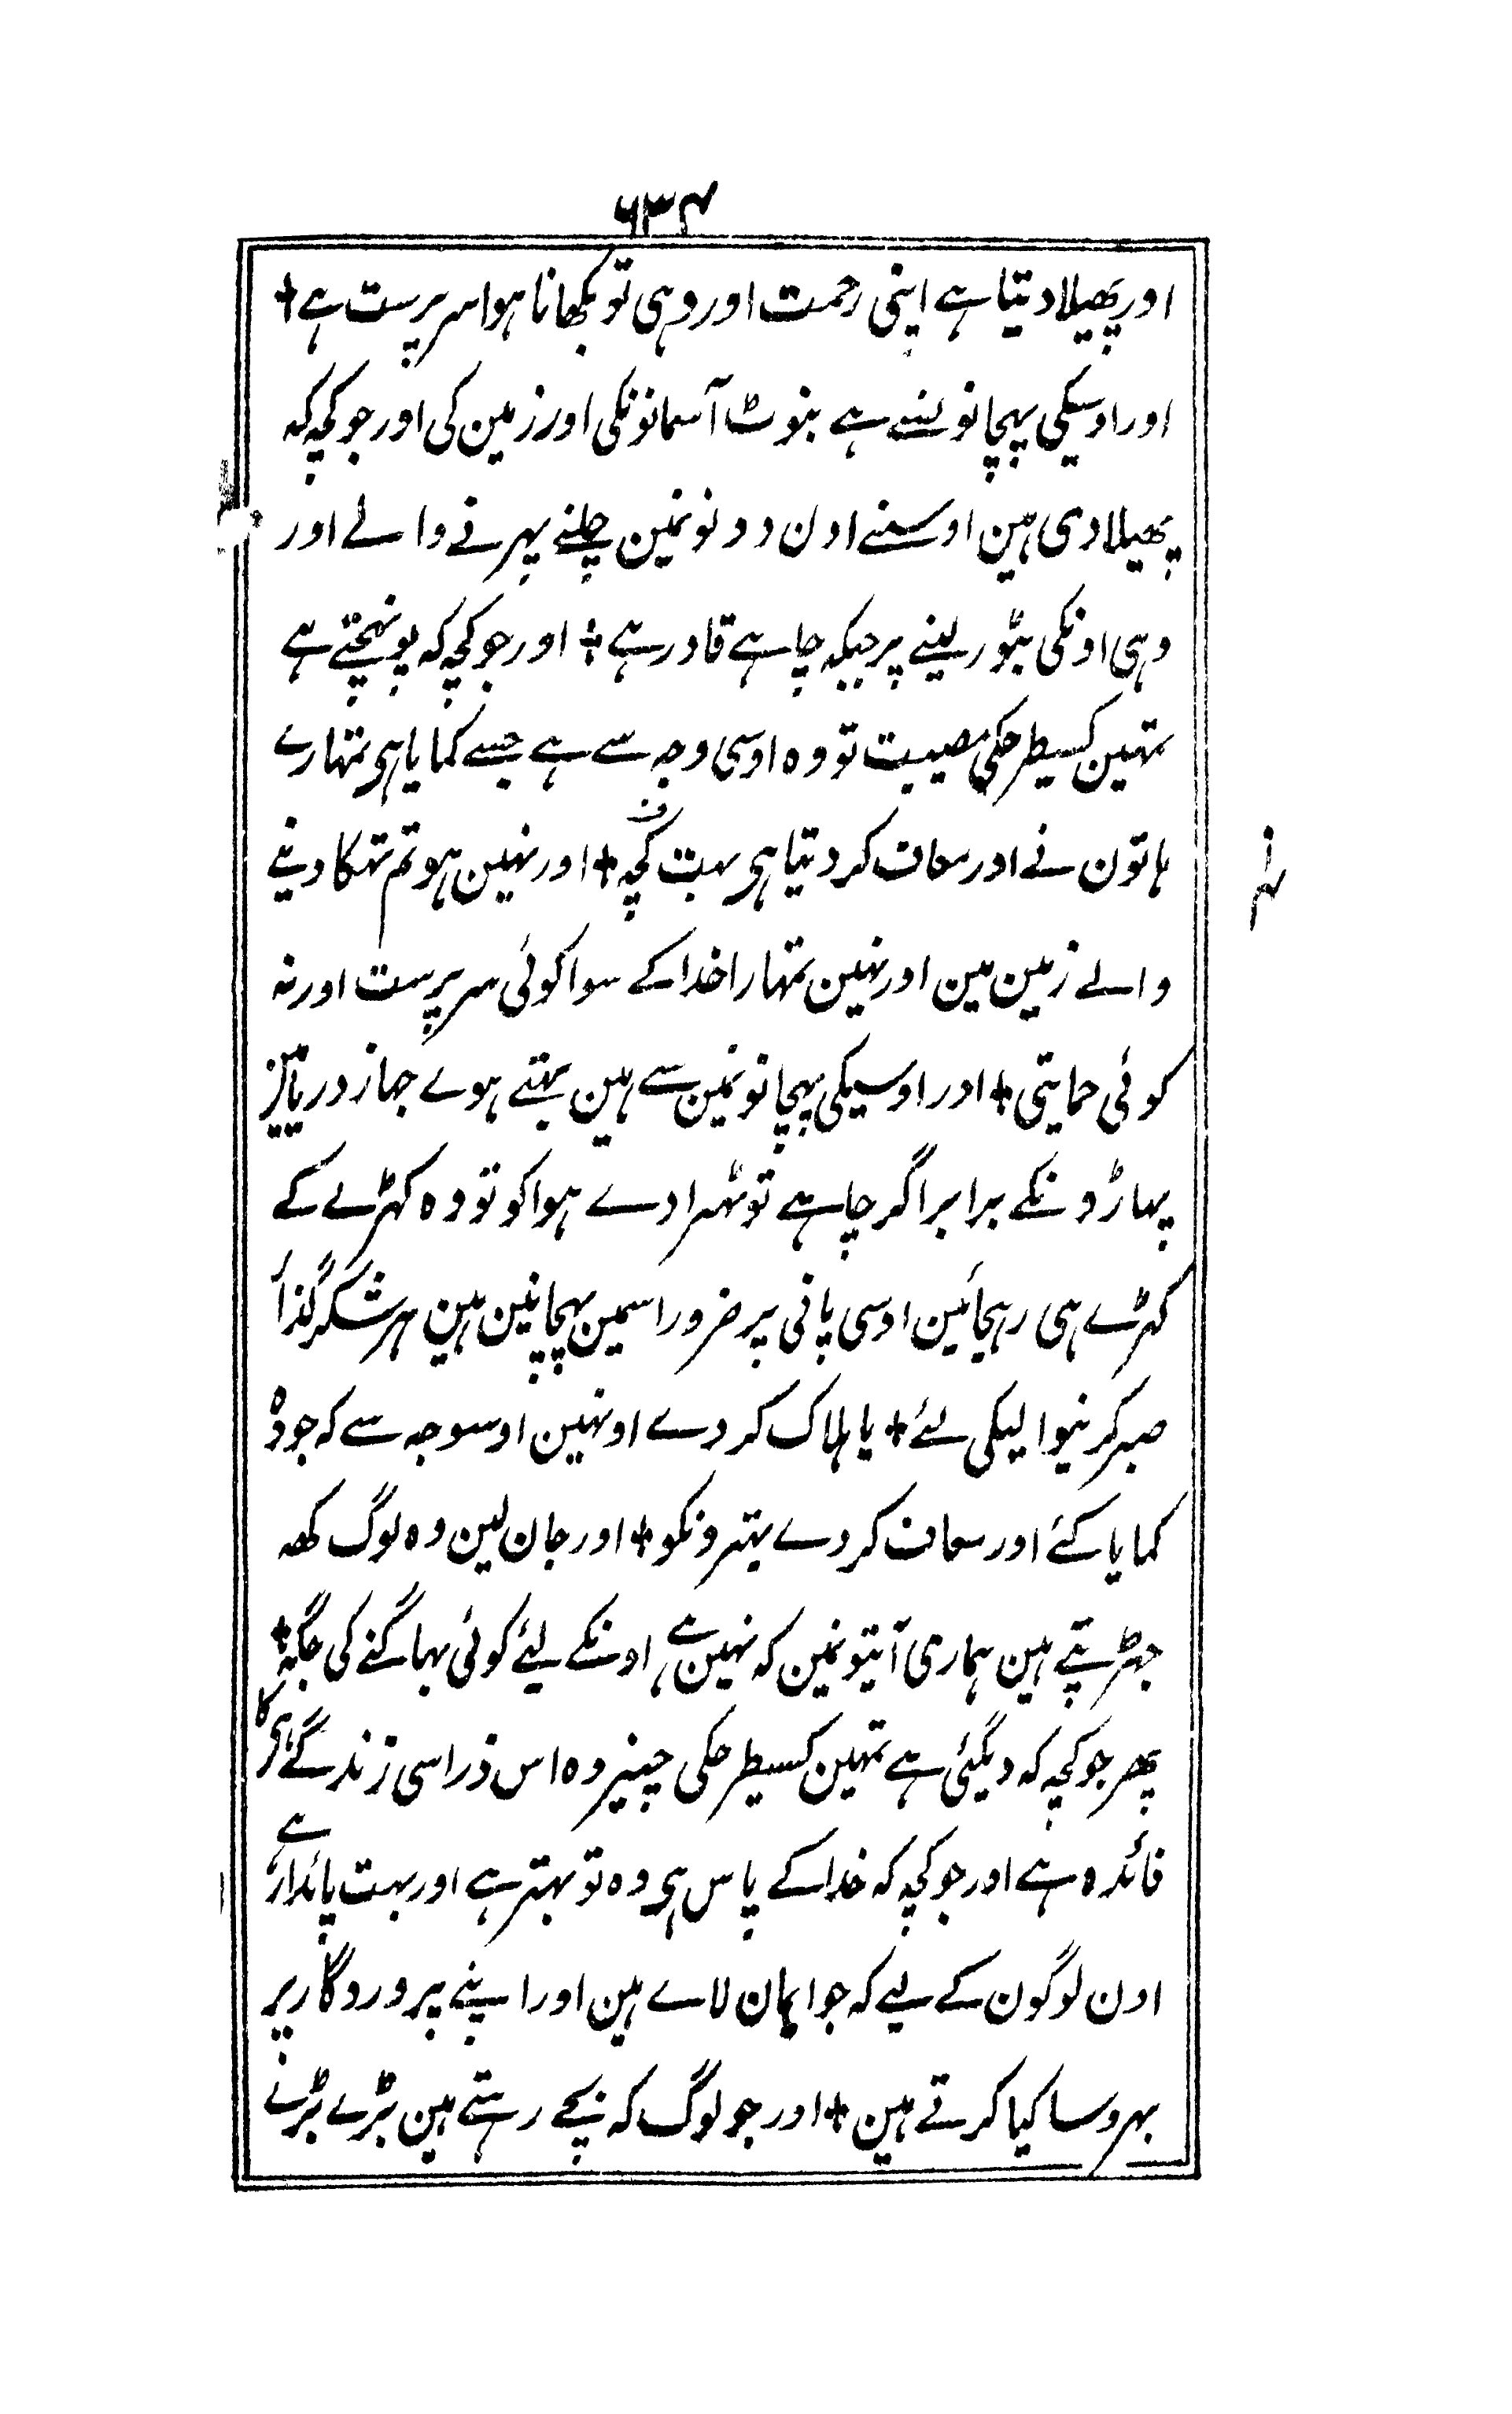 ۶۳۴
اور پھیلا دیتا ہے اپنی رحمت اور وہی تو بکھانا ہوا سرپرست ہے +
اور اوسیکی پہچانونسے ہے بنوٹ آسمانونکی اور زمین کی اور جو کچہ کہ
پھیلا دی ہین اوسنے اون دونونمین چلنے پہرنے والے اور
وہی اونکی بٹور لینے پر جبکہ چاہے قادر ہے + اور جو کچہ کہ پونہچتے ہے
تمہین کسیطرحکی مصیبت تو وہ اوسی وجہ سے ہے جسے کمایا ہی تمہارے
ہاتون نے اور معاف کر دیتا ہی بہت کچہ + اور نہین ہو تم تہکا دینے
والے زمین مین اور نہین تمہارا خدا کے سوا کوئی سرپرست اور نہ
کوئی حمایتی + اور اوسیکی پہچانونمین سے ہین بہتے ہوے جہاز دریا مین
پہاڑونکے برابر اگر چاہے تو ٹہرا دے ہوا کو تو وہ کہڑے کے
کہڑے ہی رہجائین اوسی پانی پر ضرور اسمین پہچانین ہین ہر شکر گذار
صبر کرنیوالیکی لئے + یا ہلاک کر دے اونہین اوسوجہ سے کہ جو وہ
کمایا کئے اور معاف کر دے بہترونکو + اور جان لین وہ لوگ کھ
جہڑپتے ہین ہماری آیتونمین کہ نہین ہے اونکے لیئے کوئی بہاگنے کی جگہ +
پھر جو کچہ کہ دیگئی ہے تمہین کسیطرحکی چیز وہ اس ذرا سی زندگے ہی کا
فائدہ ہے اور جو کچہ کہ خدا کے پاس ہی وہ تو بہتر ہے اور بہت پائدار ہے
اون لوگون کے لیے کہ جو ایمان لاے ہین اور اپنے پروردگار پر
بہروسا کیا کرتے ہین + اور جو لوگ کہ بچے رہتے ہین بڑے بڑے